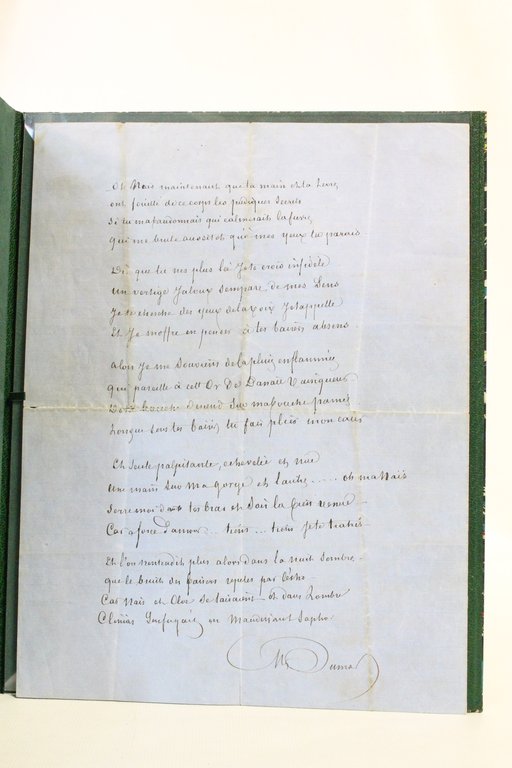 Oh Naïs maintenant que ta main et ta levre
ont fouillé de ce corps les pudiques secrets
Si tu m'abandonnais qui calmerait la fievre
qui me brule aussitôt qu'a mes yeux tu parais

Dès que tu nes plus là Je te crois infidele
Un vertige Jaloux sempare de mes Sens
Je te cherche des yeux de la voix Je t'appelle
Et Je m'offre en pensée à tes baisers absens

alors Je me souviens de la pluie enflammée
qui pareille à cet Or De Danaë Vainqueur
De ta bouche descend Sur ma bouche pamée
Lorsque sous tes baisers tu fais plier mon cœur

Et Seule palpitante, echevelée et nue
une main Sur Ma gorge et l'autre ..... oh ma Naïs
Serre moi dans tes bras et Sois la bien venue
Car a force d'amour ... tiens ... tiens Je te trahis

Et l'on n'entendit plus alors dans la nuit Sombre
que le bruit des baisers repetes par l'echo
Car Naïs et Cloé Se taisaient et dans l'ombre
Clinias s'enfuyait en Maudissant Sapho

Alx Dumas